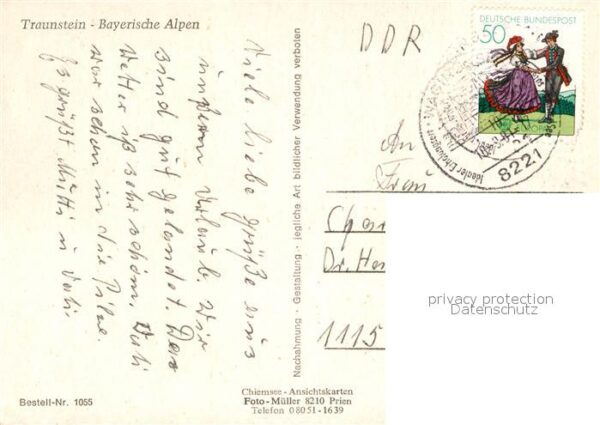 Traunstein - Bayerische Alpen
Viele liebe Grüße aus
unserem Urlaub. Wir
sind gut gelandet. Das
Wetter ist sehr schön. Vati
war schon in die Pilze.
Es grüßt Mutti u. Vati.
Bestell-Nr. 1055
Nachahmung · Gestaltung · jegliche Art bildlicher Verwendung verboten
Chiemsee-Ansichtskarten
Foto-Müller 8210 Prien
Telefon 08051-1639
DDR
DEUTSCHE BUNDESPOST
50
Idealer Erholungsort
8221
An
Frau
Dr. He
1115
privacy protection
Datenschutz